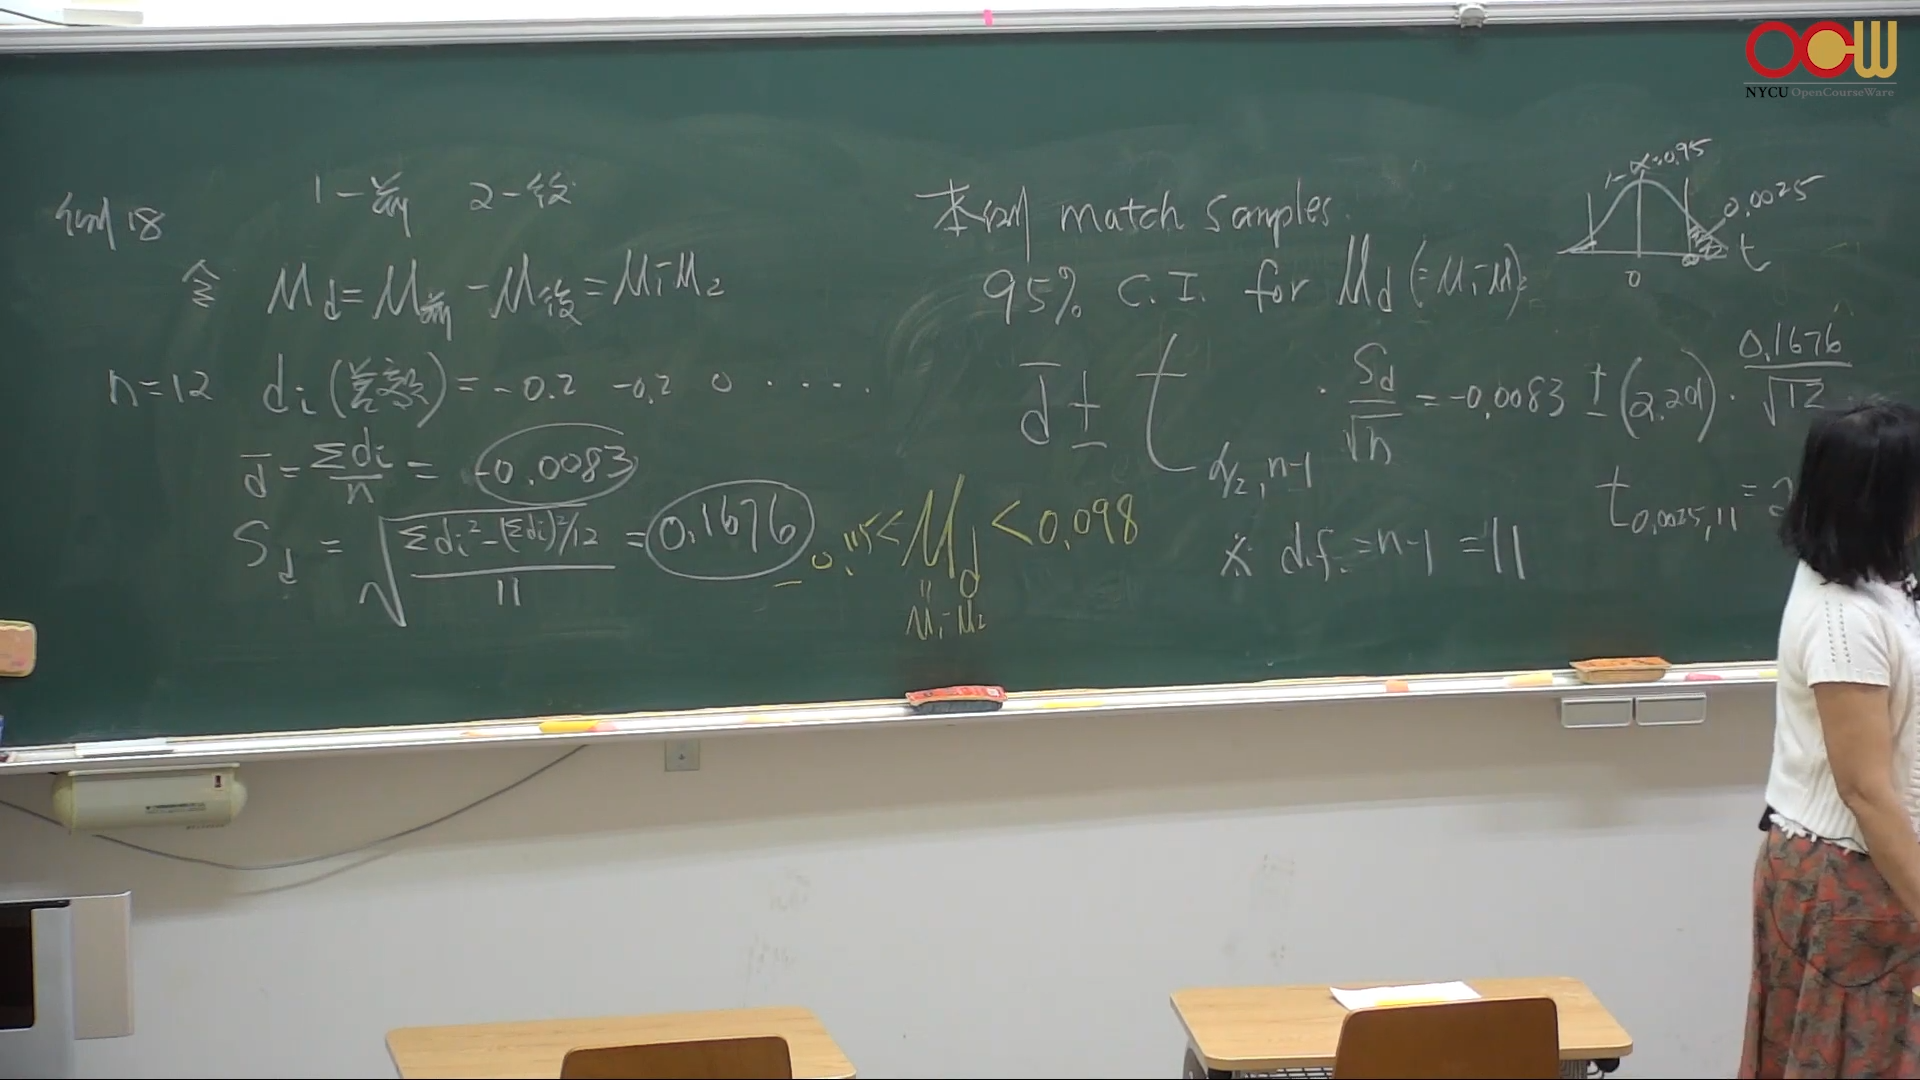 OCW
NYCU OpenCourseWare
例18
1-前 2-後
令 μd=μ前-μ後=μ1-μ2
n=12 di(差數)=-0.2 -0.2 0 ....
d̄=Σdi/n= -0.0083
Sd = √((Σdi²-(Σdi)²/12)/11) = 0.1676
-0.115<μd<0.098
=
μ1-μ2
本例 match samples.
95% C.I. for μd (=μ1-μ2)
d̄ ± t α/2, n-1 · Sd/√n = -0.0083 ± (2.201) · 0.1676/√12
※ d.f. = n-1 = 11
t0.0025,11 = 2
1-α=0.95
0.0025
0
t